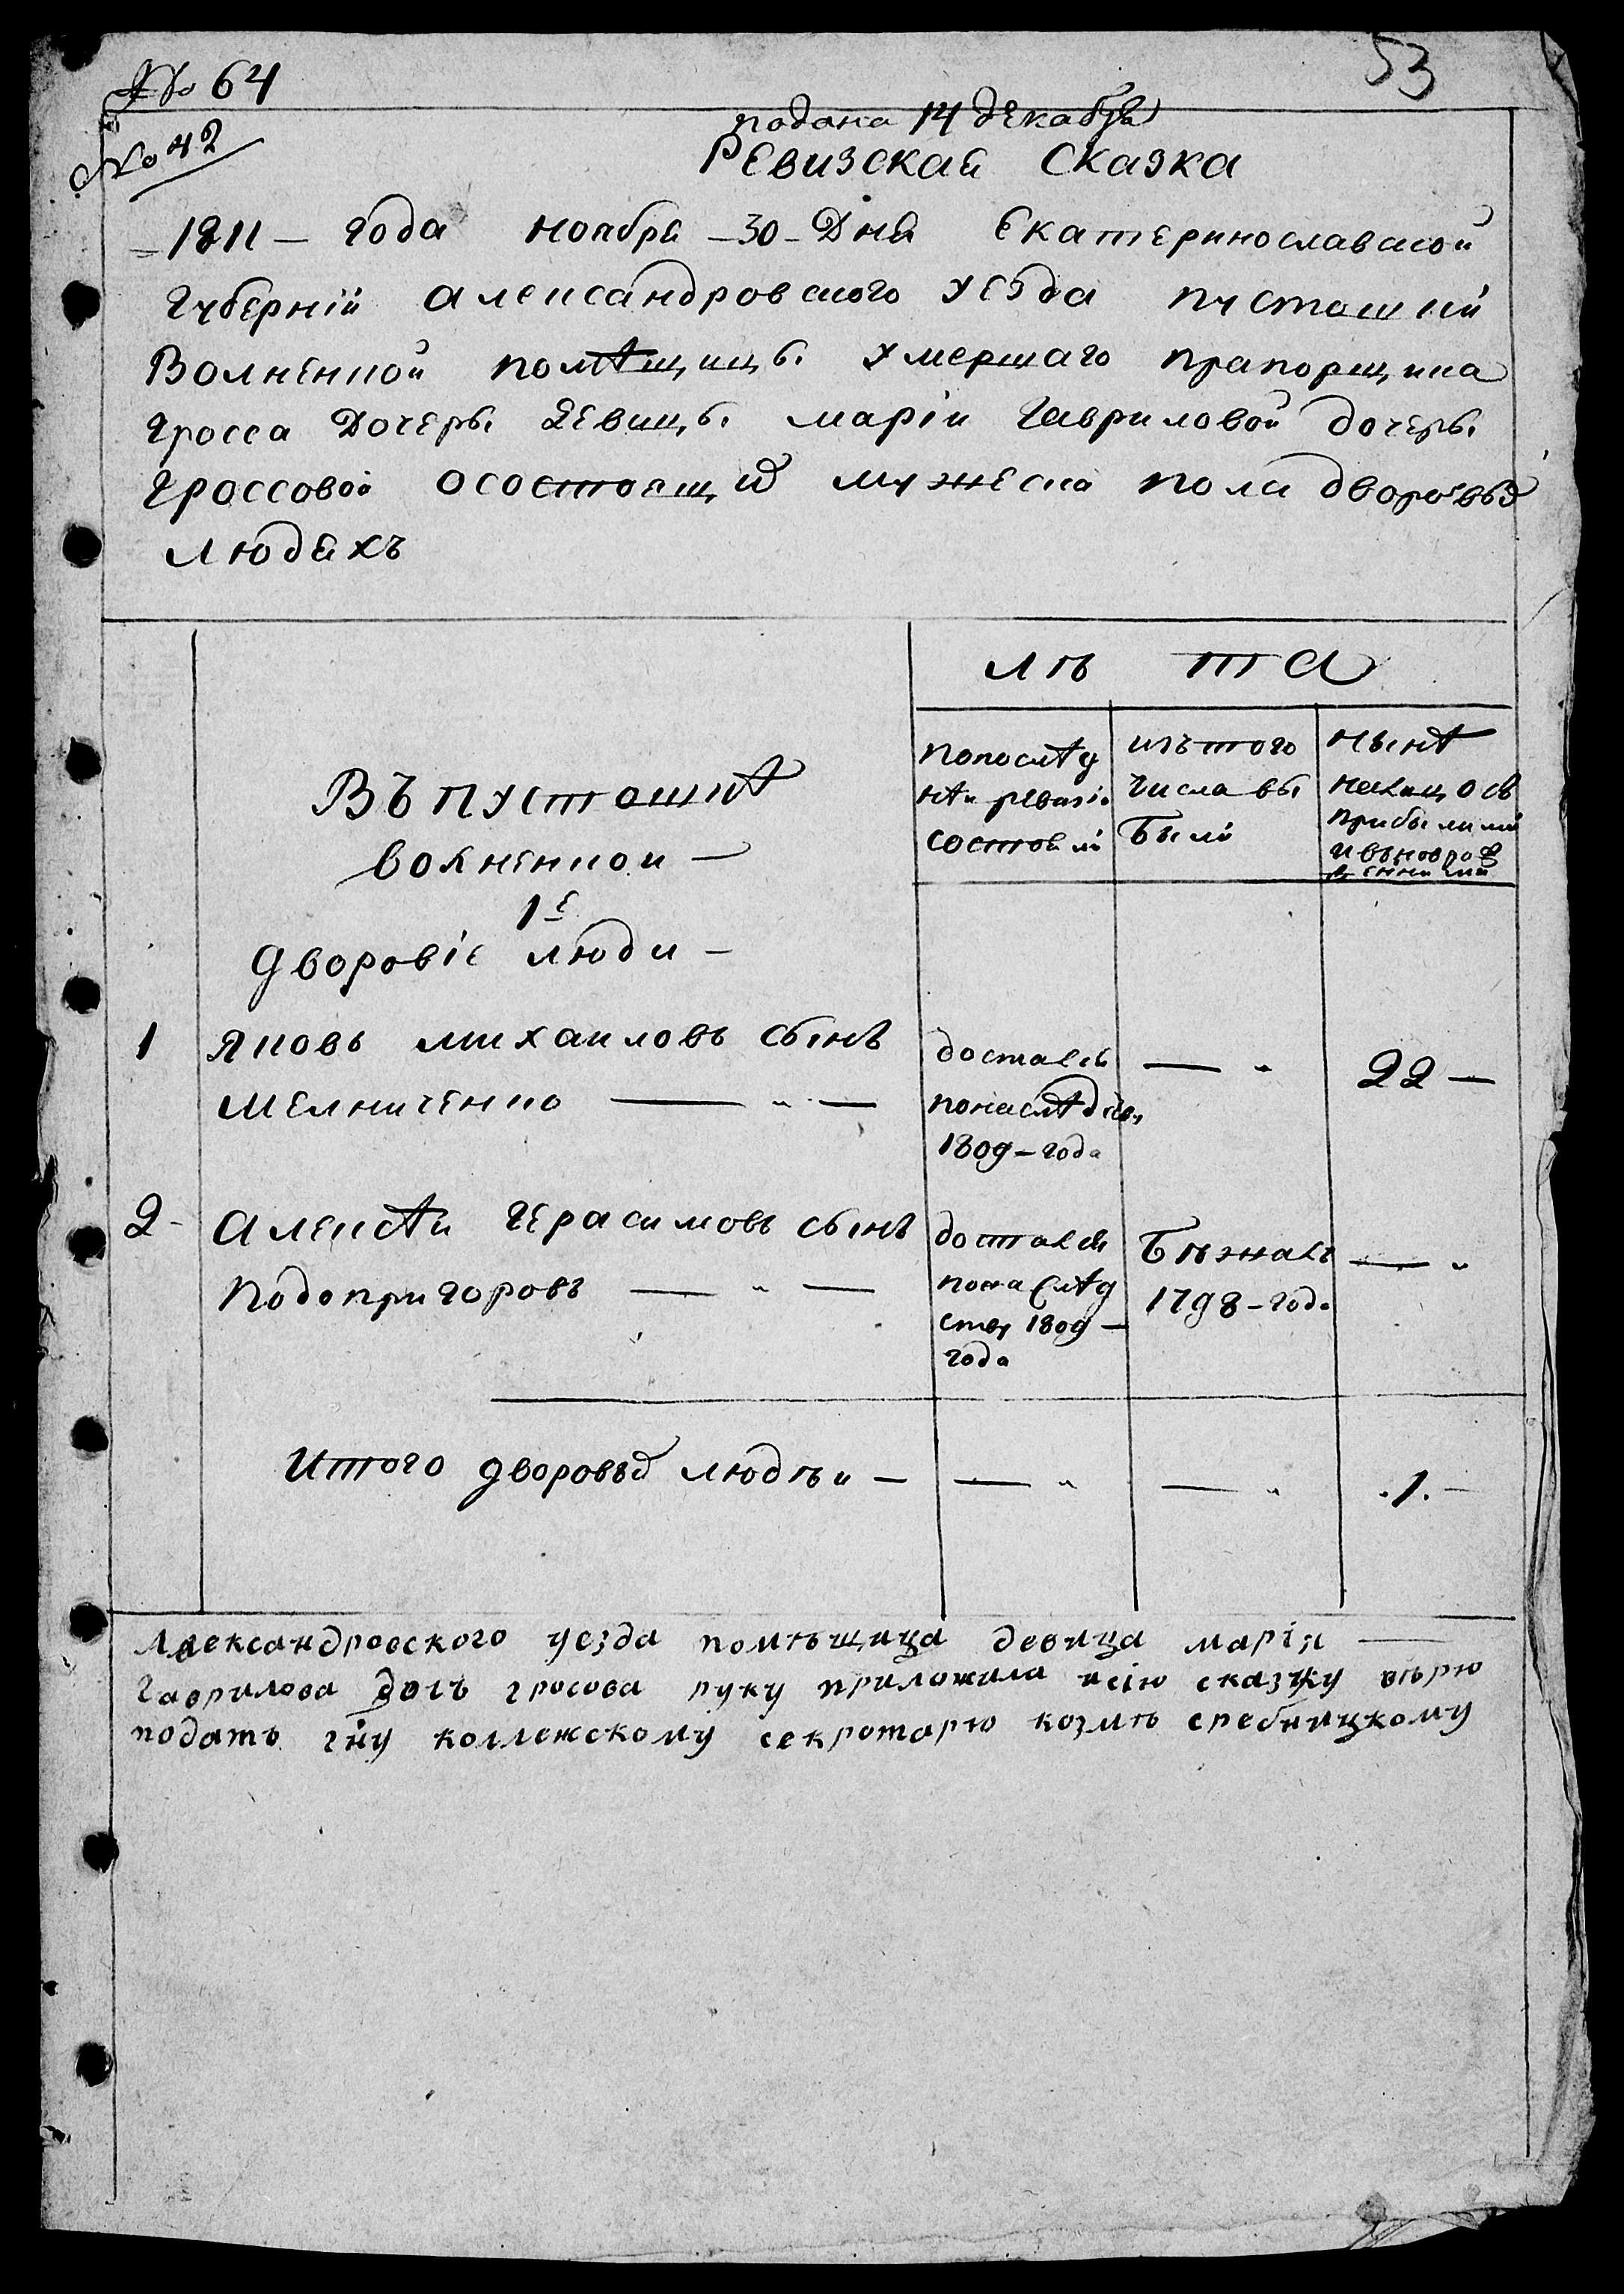 № 64
53
№ 42
подана 14 декабря
Ревизская Сказка
1811 – года ноября – 30 – Дня Екатеринославской
Губерніи Александровского уезда пустошки
Волненкой помѣщицы умершаго прапорщика
Гросса Дочеры Девицы маріи Гавриловой дочеры
Гроссовой осостоящих мужеска пола дворовых
людяхъ
лѣ та
Въ пустошкѣ
волненкои –
1е
дворовіе люди –
попослѣд
нѣи ревизіи
состояли
изътого
числа вы
были
нынѣ
налицо съ
прибылими
и вьновро
1 Яковъ михаиловъ сынъ
Мелниченко
досталсь
понаследству
1809 – года
— „
22 —
2 – Алексѣи Герасимовъ сынъ
Подопригоровъ — „ —
достался
понаслѣд
ству 1809 –
года
Бѣжалъ
1798 – года
— „
Итого дворовых людѣи —
— „
— „
.1. –
Александровского уезда помѣщица девица марія —
Гаврилова дочъ гросова руку приложила исію сказку вѣрю
подать гну коллежскому секротарю козмѣ сребницкому